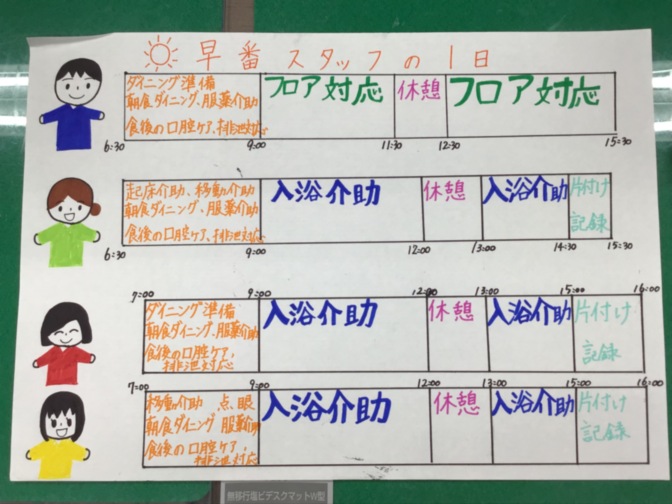 早番 スタッフの1日
ダイニング準備
朝食ダイニング、服薬介助
食後の口腔ケア、排泄対応
フロア対応
休憩
フロア対応
6:30
9:00
11:30
12:30
15:30
起床介助、移動介助
朝食ダイニング、服薬介助
食後の口腔ケア、排泄対応
入浴介助
休憩
入浴介助
片付け
記録
6:30
9:00
12:00
13:00
14:30
15:30
7:00
9:00
12:00
13:00
15:00
16:00
ダイニング準備
朝食ダイニング、服薬介助
食後の口腔ケア、
排泄対応
入浴介助
休憩
入浴介助
片付け
記録
7:00
9:00
12:00
13:00
15:00
16:00
移動介助 点眼
朝食ダイニング 服薬介助
食後の口腔ケア、
排泄対応
入浴介助
休憩
入浴介助
片付け
記録
無移行塩ビデスクマットW型